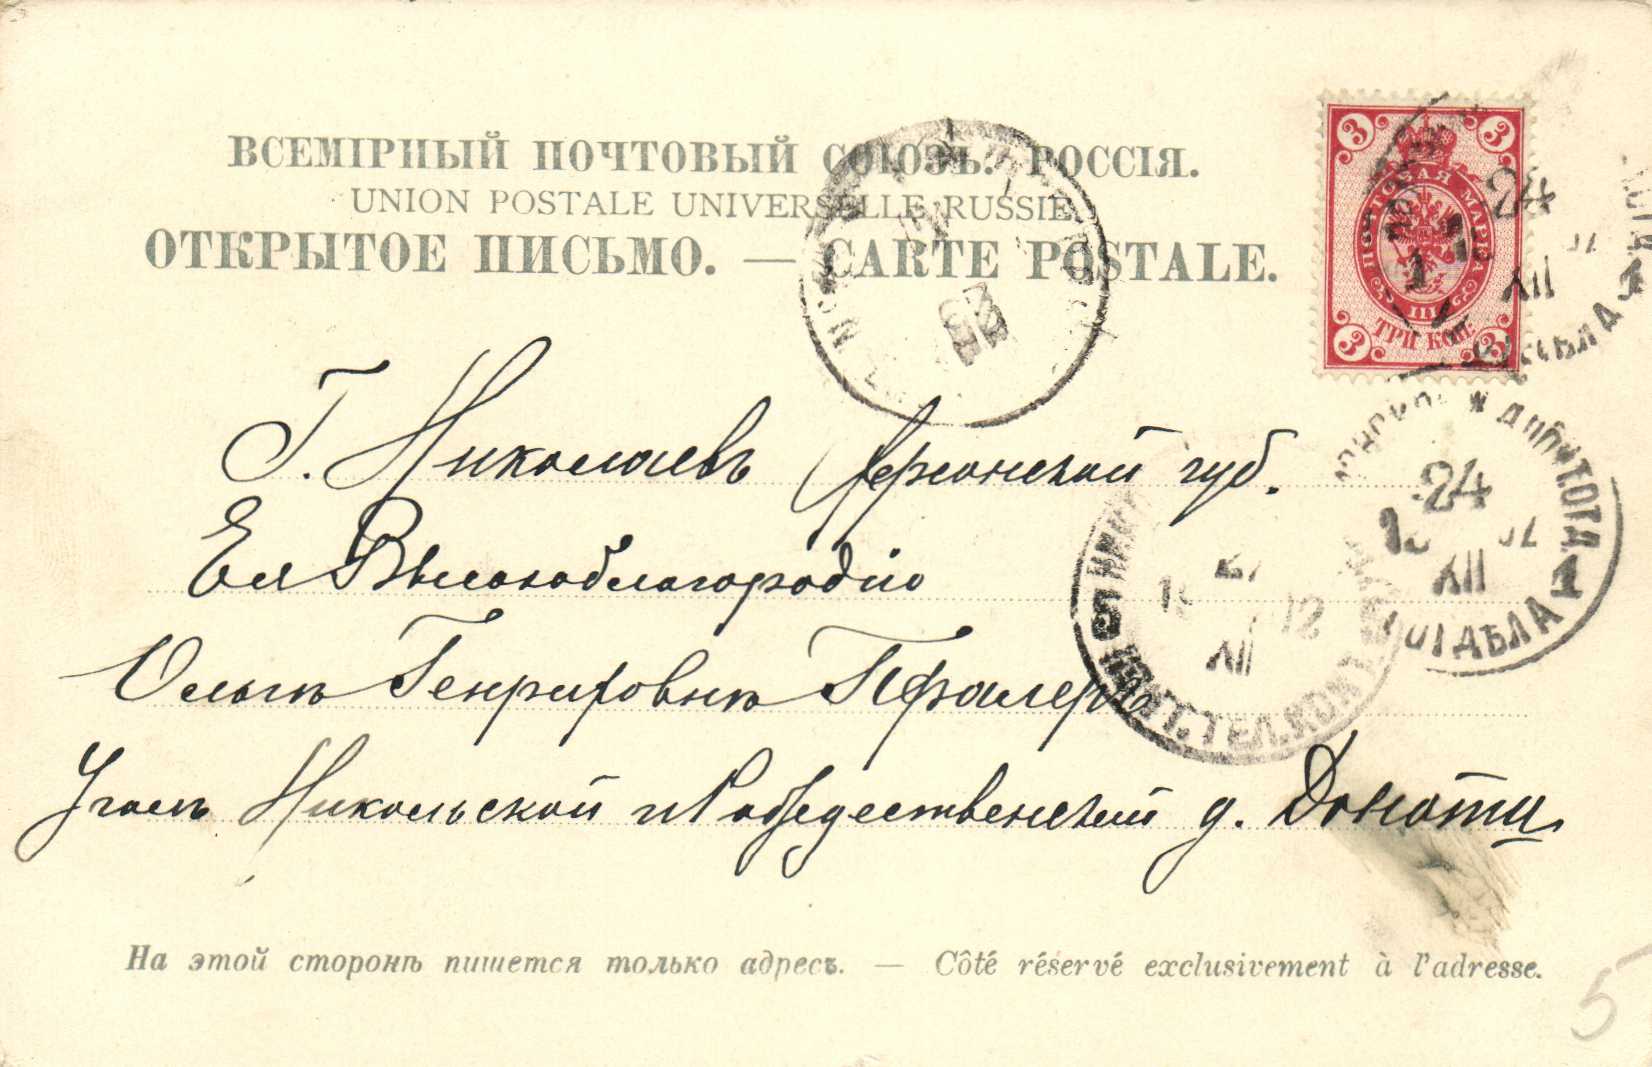 ВСЕМІРНЫЙ ПОЧТОВЫЙ СОЮЗЪ. РОССІЯ.
UNION POSTALE UNIVERSELLE RUSSIE.
ОТКРЫТОЕ ПИСЬМО. — CARTE POSTALE.
3 3
ПОЧТОВАЯ МАРКА
III
3 ТРИ КОП. 3
24
XII
ОТДѢЛА 1
24
XII
ОТДѢЛА 1
XII
ПОЧТ. ТЕЛ. КОНТ.
Г. Николаевъ Херсонской губ.
Ея Высокоблагородію
Ольгѣ Генриховнѣ
Уголъ Никольской и Рождественской д. Донати
На этой сторонѣ пишется только адресъ. — Côté réservé exclusivement à l'adresse.
5